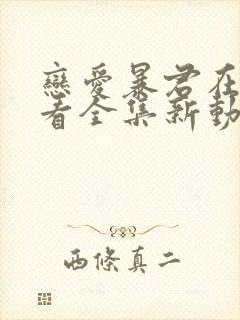 戀愛暴君在
看全集新動
西條真二